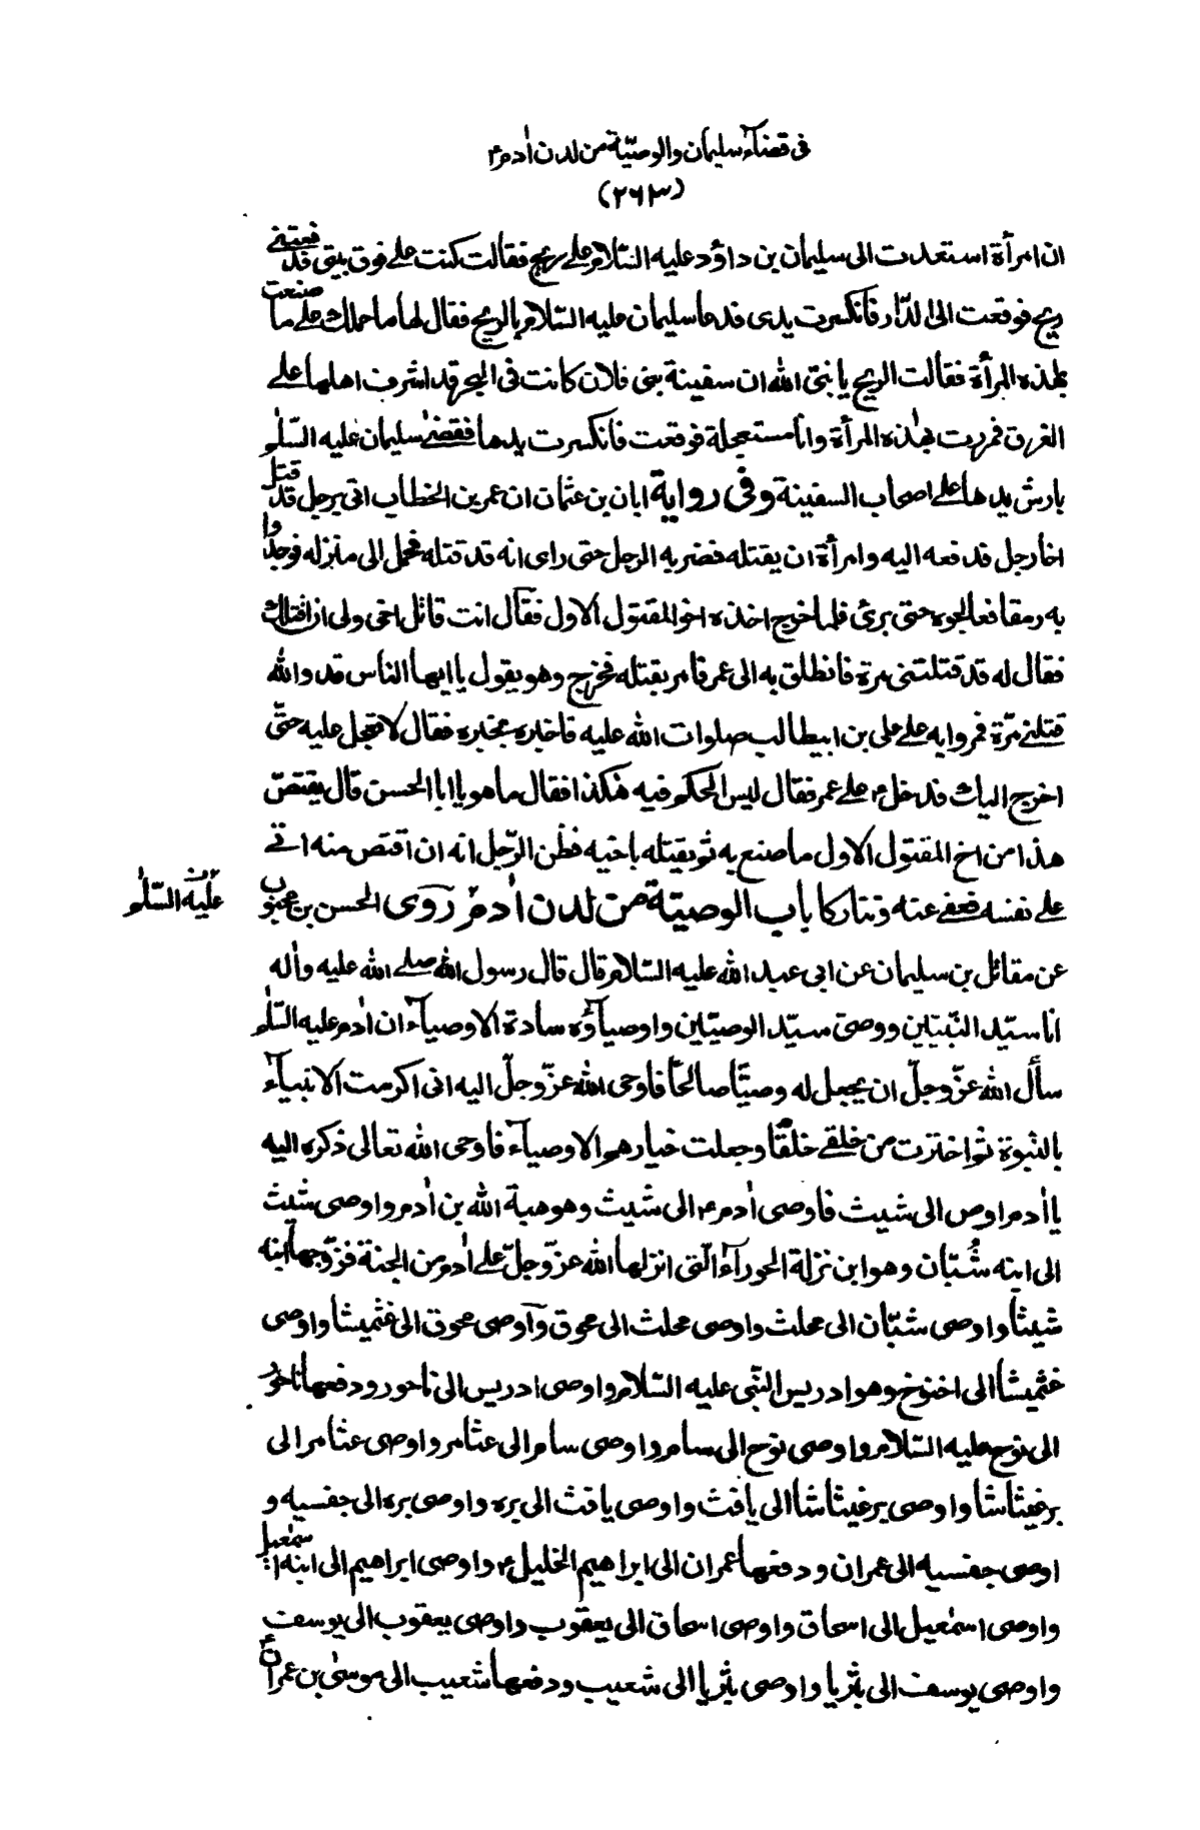 فى قضاء سليمان والوصيّة من لدن اٰدم ع
(٢٦٣)
ان امرأة استعدت الى سليمان بن داؤد عليه السّلام على ريح فقالت كنت على فوق بيتى قد فعتنى
ريح فوقعت الى الدّار فانكسرت يدى فدعا سليمان عليه السّلام بالريح فقال لها ما حملك على ما صنعت
بهذه المرأة فقالت الريح يا نبىّ الله ان سفينة بنى فلان كانت فى البحر قد اشرف اهلها على
الغرق فمررت بهٰذه المرأة وانا مستعجلة فوقعت فانكسرت يدها فقضىٰ سليمان عليه السّلٰم
بارش يدها على اصحاب السفينة وفى رواية ابان بن عثمان ان عمر بن الخطاب اتى برجل قد قتل
اخا رجل فدفعه اليه وامرأة ان يقتله فضربه الرجل حتى راى انه قد قتله فحمل الى منزله فوجدوا
به رمقا فعالجوه حتى برئ فلما خرج اخذه اخو المقتول الاول فقال انت قاتل اخى ولى ان اقتلك
فقال له قد قتلتنى مرة فانطلق به الى عمر فامر بقتله فخرج وهو يقول يا ايها الناس قد والله
قتلنى مرّة فمروا به على على بن ابيطالب صلوات الله عليه فاخبره بخبره فقال لا تعجل عليه حتّى
اخرج اليك فدخل ع على عمر فقال ليس الحكم فيه هٰكذا فقال ما هو يا ابا الحسن قال يقتصّ
هذا من اخ المقتول الاول ما صنع به ثم يقتله باخيه فظن الرّجل انه ان اقتص منه اتى
على نفسه فعفى عنه وتتاركا باب الوصيّة من لدن اٰدم ع روى الحسن بن محبوب
عليه السّلٰم
عن مقاتل بن سليمان عن ابى عبد الله عليه السّلام قال قال رسول الله صلى الله عليه واٰله
انا سيّد النّبيّين ووصى سيّد الوصيّين واوصياؤه سادة الاوصياء ان اٰدم عليه السّلٰم
سأل الله عزّ وجلّ ان يجعل له وصيّا صالحًا فاوحى الله عزّ وجلّ اليه انى اكرمت الانبياء
بالنّبوة ثم اخترت من خلقى خلقًا وجعلت خيارهم الاوصياء فاوحى الله تعالى ذكره اليه
يا اٰدم اوص الى شيث فاوصى اٰدم ع الى شيث وهو هبة الله بن اٰدم واوصى شيث
الى ابنه شُبّان وهو ابن نزلة الحوراء الّتى انزلها الله عزّ وجلّ على اٰدم من الجنة فزوّجها ابنه
شيثا واوصى شبّان الى محلث واوصى محلث الى محوق واوصى محوق الى غثميشا واوصى
غثميشا الى اخنوخ وهو ادريس النّبى عليه السّلام واوصى ادريس الى ناحور ودفعها ناحور
الى نوح عليه السّلام واوصى نوح الى سام واوصى سام الى عثامر واوصى عثامر الى
برغيثاشا واوصى برغيثاشا الى يافث واوصى يافث الى بره واوصى بره الى جفسيه و
اوصى جفسيه الى عمران ودفعها عمران الى ابراهيم الخليل ع واوصى ابراهيم الى ابنه اسمٰعيل
واوصى اسمٰعيل الى اسحاق واوصى اسحاق الى يعقوب واوصى يعقوب الى يوسف
واوصى يوسف الى بثريا واوصى بثريا الى شعيب ودفعها شعيب الى موسىٰ بن عمران ع